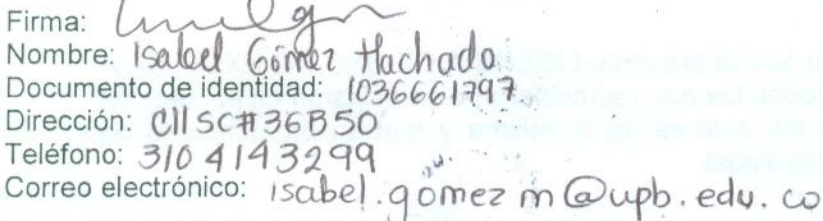 Firma:
Nombre: Isabel Gómez Machado
Documento de identidad: 1036661797
Dirección: Cll 5C#3EB50
Teléfono: 310 4143299
Correo electrónico: isabel.gomezm@upb.edu.co